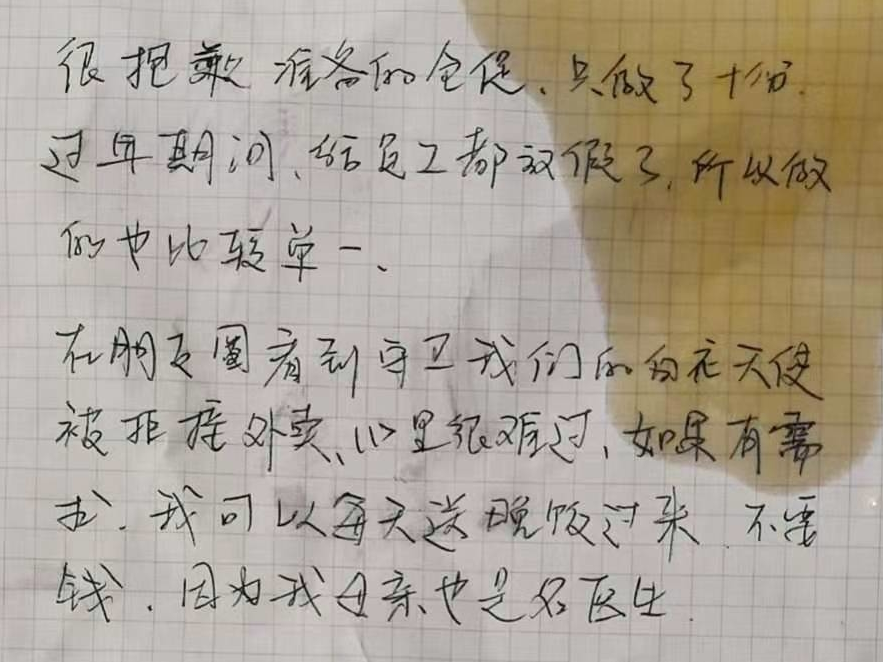 很抱歉 准备的仓促、只做了十份.
过年期间、给员工都放假了,所以做
的也比较单一、
在朋友圈看到守卫我们的白衣天使
被拒接外卖、心里很难过、如果有需
求、我可以每天送晚饭过来 、不要
钱、因为我母亲也是名医生.